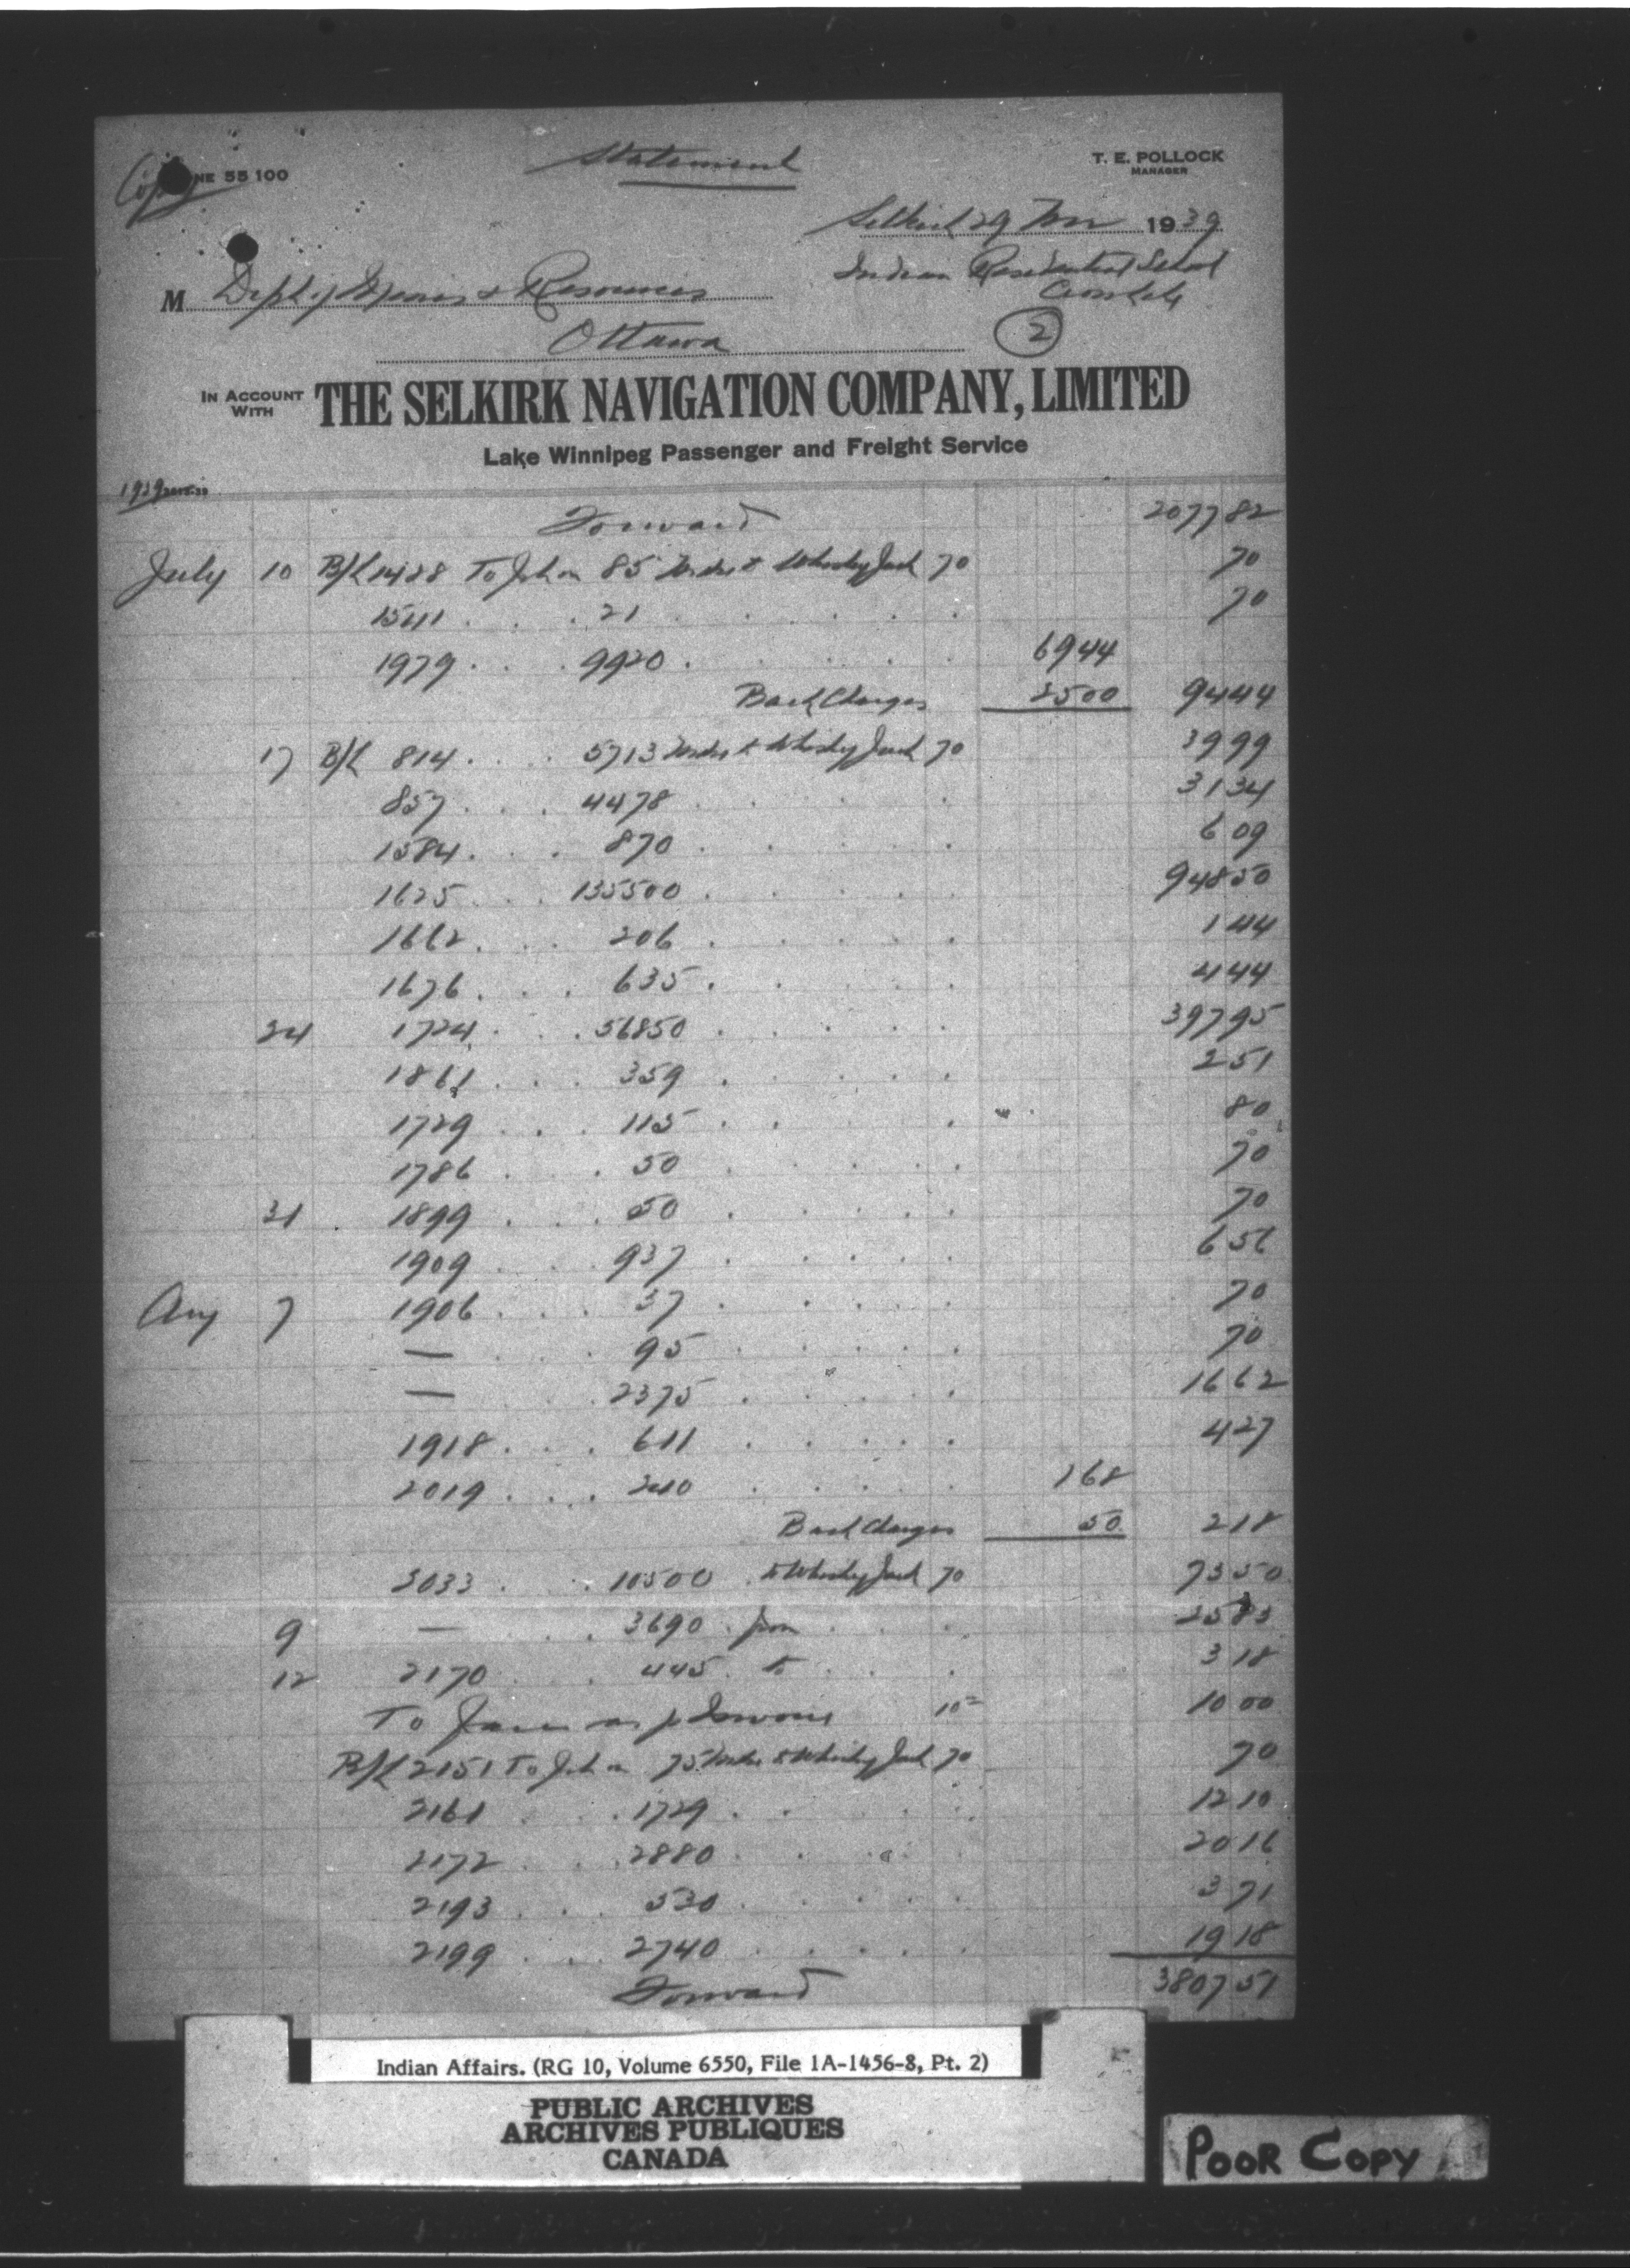 Copy
NE 55 100
Statement
T. E. POLLOCK
MANAGER
Selkirk 29 Nov 1939
M Dept of Mines & Resources
Indian Residential School
Cross Lake
Ottawa
2
IN ACCOUNT WITH THE SELKIRK NAVIGATION COMPANY, LIMITED
Lake Winnipeg Passenger and Freight Service
1939
Forward 2077 82
July 10 B/L 1488 To 85 Mdse to Whisky Jack 70 70
1541 . . . 21 . . . . . 70
1979 . . . 9920 . . . . . 69 44
Back Charges 25 00 94 44
17 B/L 814 . . . . 5713 Mdse to Whisky Jack 70 39 99
857 . . . 4478 . . . . . 31 34
1584 . . . 870 . . . . . 6 09
1625 . . . 135500 . . . . . 948 50
1662 . . . 206 . . . . . 1 44
1676 . . . 635 . . . . . 4 44
24 1724 . . . 56850 . . . . . 397 95
1861 . . . 359 . . . . . 2 51
1729 . . . 115 . . . . . 80
1786 . . . 50 . . . . . 70
31 1899 . . . 50 . . . . . 70
1909 . . . 937 . . . . . 6 56
Aug 7 1906 . . . 37 . . . . . 70
— . . 95 . . . . . 70
— . . 2375 . . . . . 16 62
1918 . . . 611 . . . . . 4 27
2019 . . . 240 . . . . . 1 68
Back Charges 50 2 18
3033 . . . 10500 . to Whisky Jack 70 73 50
9 — . . 3690 . from . . . 25 83
12 2170 . . . 445 . to . . . 3 18
To as p 10= 10 00
B/L 2151 To 75 Mdse to Whisky Jack 70 70
2161 . . . 1729 . . . . . 12 10
2172 . . . 2880 . . . . . 20 16
2193 . . . 530 . . . . . 3 71
2199 . . . 2740 . . . . . 19 18
Forward 3807 51
Indian Affairs. (RG 10, Volume 6550, File 1A-1456-8, Pt. 2)
PUBLIC ARCHIVES
ARCHIVES PUBLIQUES
CANADA
POOR COPY